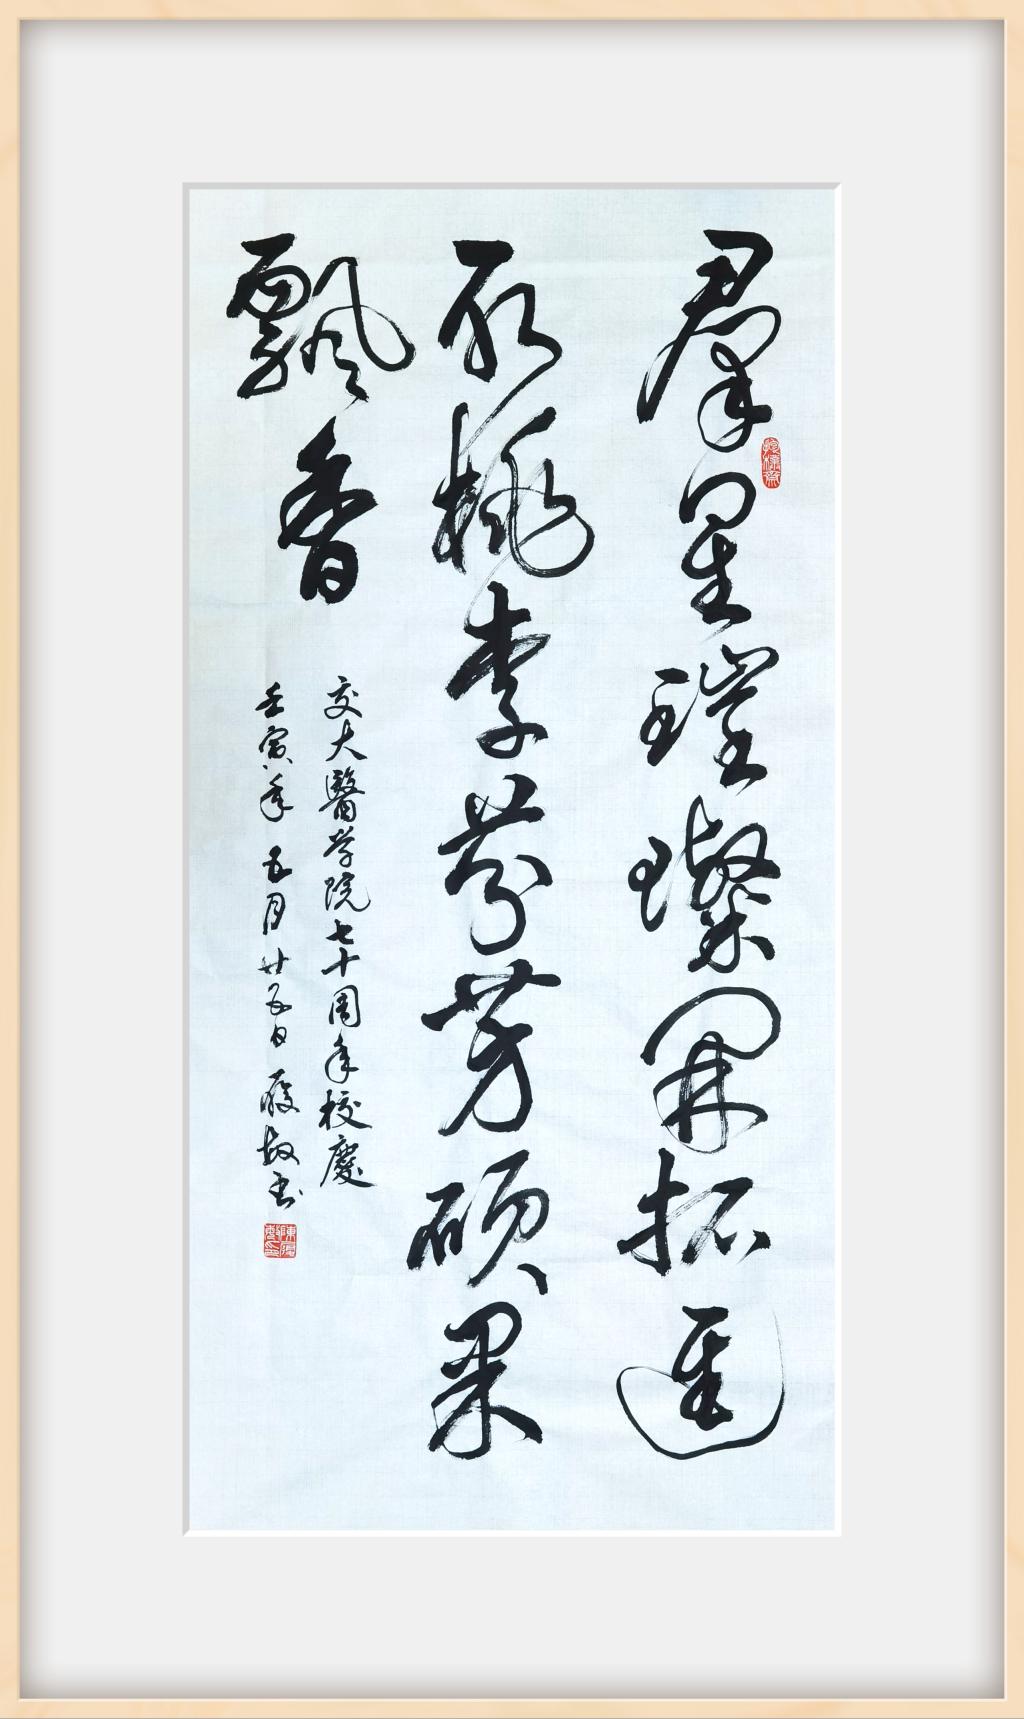 羣星璀璨開拓進
取桃李芬芳碩果
飄香
交大醫学院七十周年校慶
壬寅年五月廿五日